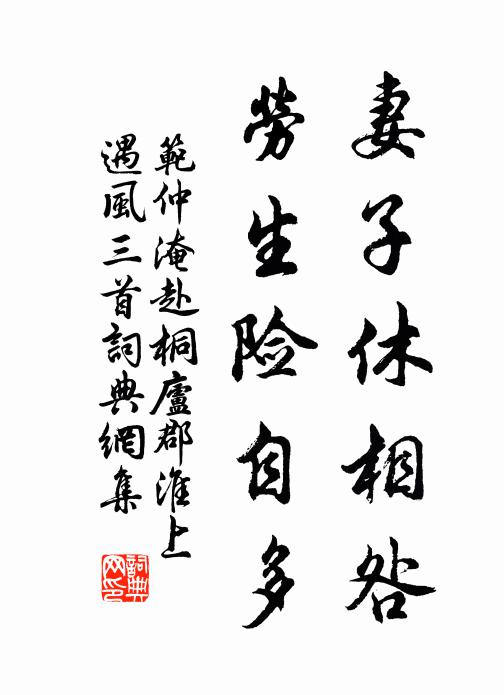 妻子休相咎
勞生险自多
範仲淹赴桐廬郡淮上
遇風三首詞典網集
詞典
网印